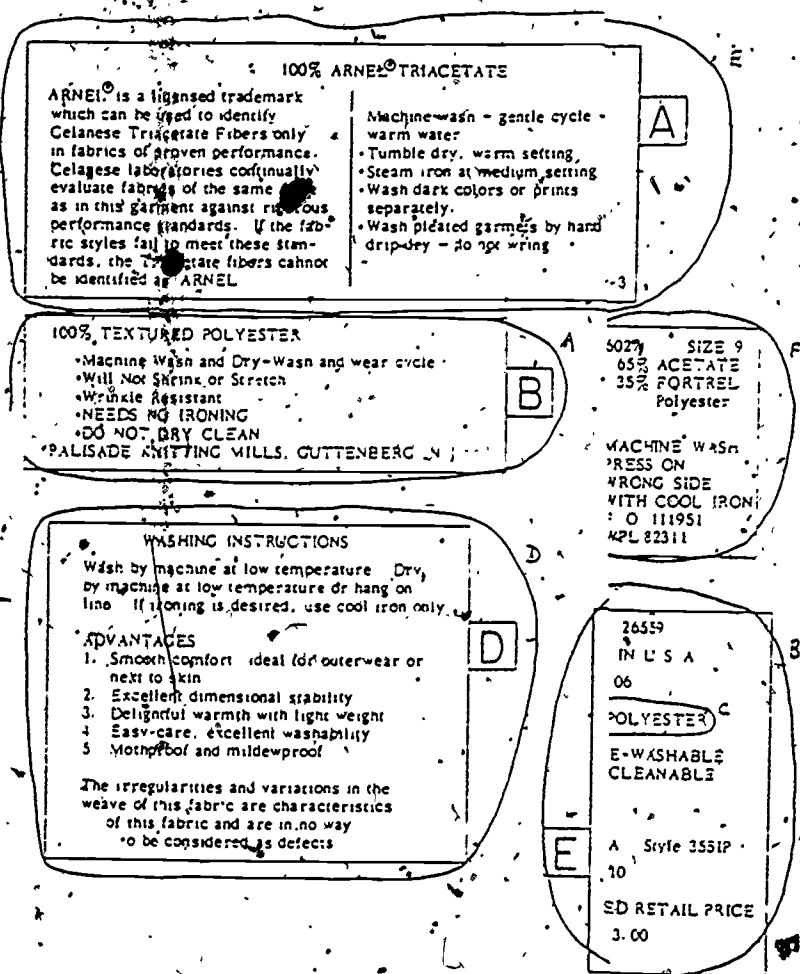 100% ARNEL® TRIACETATE
ARNEL® is a licensed trademark
which can be used to identify
Celanese Triacetate Fibers only
in fabrics of proven performance.
Celanese laboratories continually
evaluate fabrics of the same
as in this garment against rigorous
performance standards. If the fab-
ric styles fail to meet these stan-
dards, the Triacetate fibers cannot
be identified as ARNEL
Machine wash - gentle cycle -
warm water
• Tumble dry, warm setting
• Steam iron at medium setting
• Wash dark colors or prints
separately.
• Wash pleated garmets by hand
drip-dry - do not wring
3
A
100% TEXTURED POLYESTER
• Machine Wash and Dry-Wash and wear cycle
• Will Not Shrink or Stretch
• Wrinkle Resistant
• NEEDS NO IRONING
• DO NOT DRY CLEAN
PALISADE KNITTING MILLS, GUTTENBERG N J
B
A
SIZE 9
65% ACETATE
35% FORTREL
Polyester
MACHINE WASH
PRESS ON
WRONG SIDE
WITH COOL IRON
O 111951
WPL 82311
F
WASHING INSTRUCTIONS
Wash by machine at low temperature Dry
by machine at low temperature or hang on
line If ironing is desired, use cool iron only
ADVANTAGES
1. Smooth comfort ideal for outerwear or
next to skin
2. Excellent dimensional stability
3. Delightful warmth with light weight
4 Easy-care, excellent washability
5 Mothproof and mildewproof
The irregularities and variations in the
weave of this fabric are characteristics
of this fabric and are in no way
to be considered as defects
D
D
26559
IN U S A
06
POLYESTER
C
E-WASHABLE
CLEANABLE
A Style 3551P
10
ED RETAIL PRICE
3.00
E
B